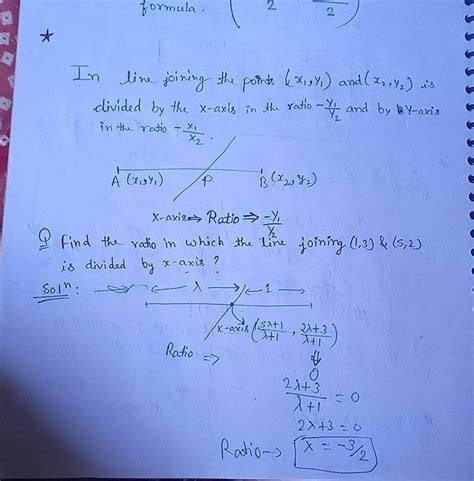 formula. ( 2 2 )
★
In line joining the points (x₁,y₁) and (x₂,y₂) is
divided by the x-axis in the ratio -y₁/y₂ and by Y-axis
in the ratio -x₁/x₂.
A (x₁,y₁) P B (x₂,y₂)
x-axis ⇒ Ratio ⇒ -y₁/y₂
Q Find the ratio in which the line joining (1,3) & (5,2)
is divided by x-axis ?
Solⁿ: ← λ → ← 1 →
x-axis (5λ+1/λ+1, 2λ+3/λ+1)
Ratio ⇒ ⇓
0
2λ+3/λ+1 = 0
2λ+3 = 0
Ratio → λ = -3/2